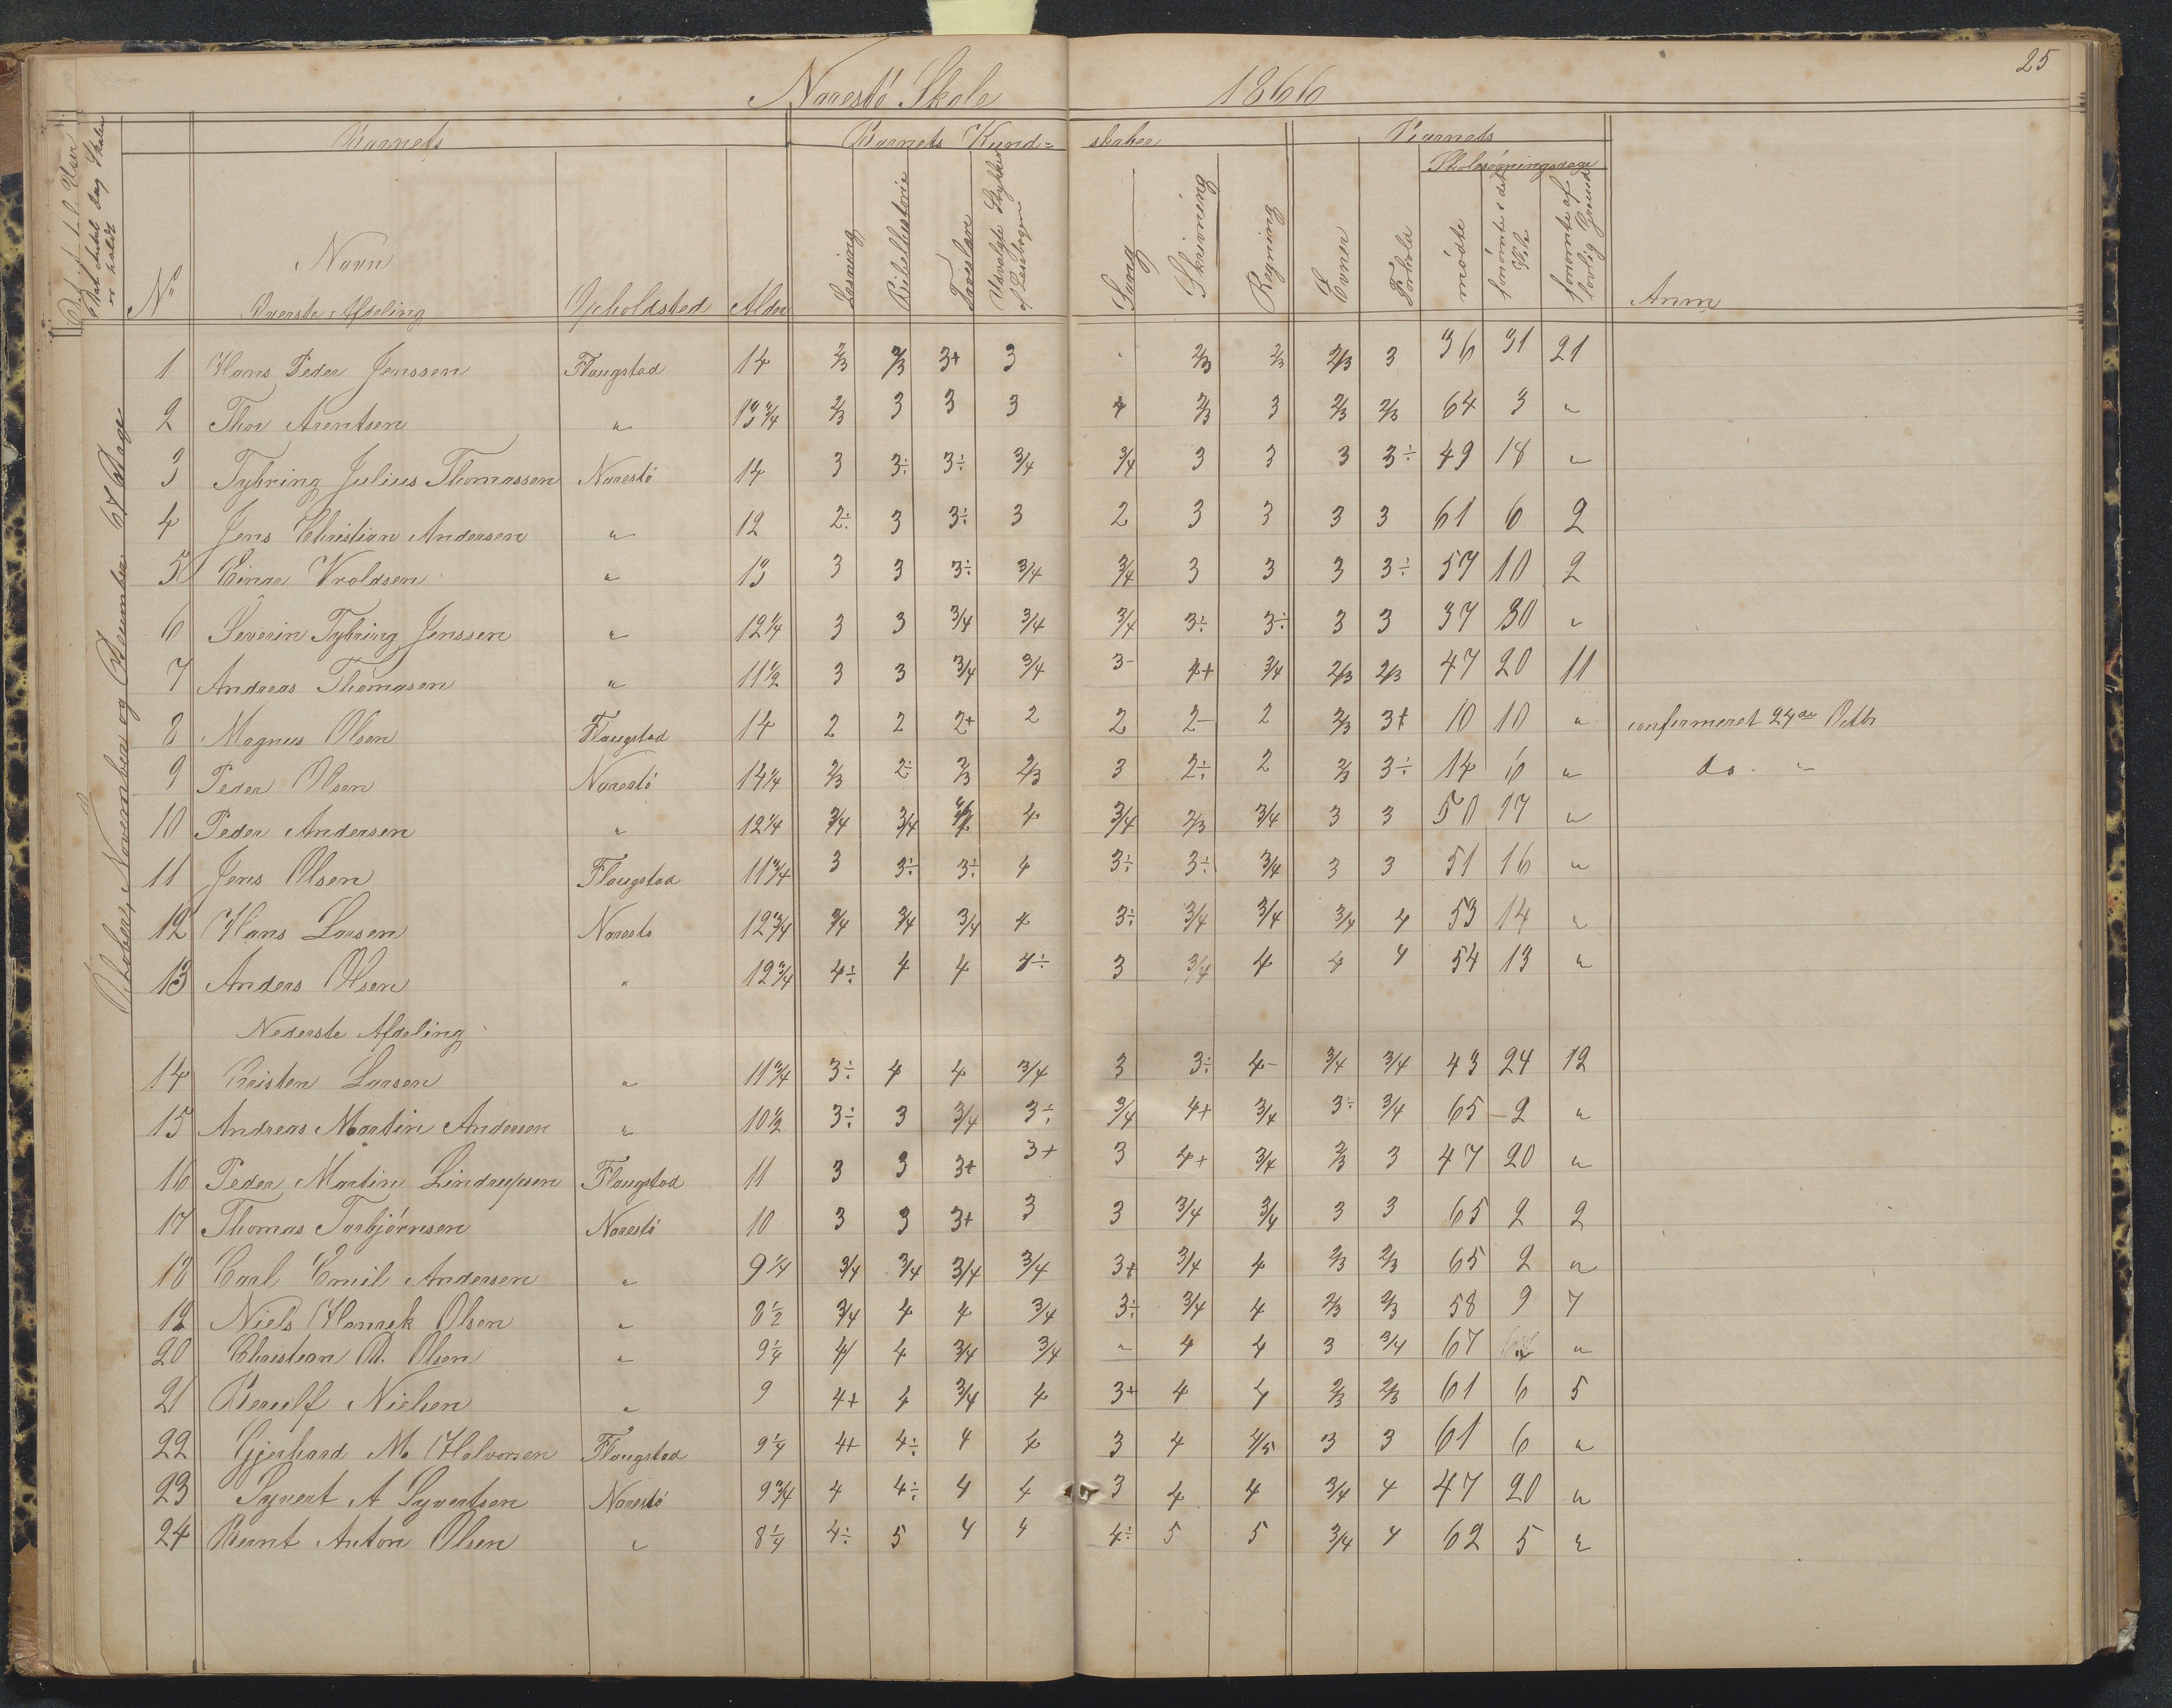 25
Narestö Skole 1866
Barnets Barnets Kund- skaber Barnets
Skolesøgningsdage
Det Antal Dage Skolen er holdt
No Navn Opholdsted Alder Læsning Bibelhistorie Troeslære Udvalgte Stykker af Læsebogen Sang Skrivning Regning Evner Forhold mødte forsømte i det Hele forsømte af lovlig Grund Anm
Overste Afdeling
October, November og December 67 Dage
1 Hans Peder Jenssen Flaugstad 14 2/3 2/3 3+ 3 2/3 2/3 2/3 3 36 31 21
2 Thor Arentsen " 13 3/4 2/3 3 3 3 4 2/3 3 2/3 2/3 64 3 "
3 Tybring Julius Thomassen Narestö 14 3 3÷ 3÷ 3/4 3/4 3 3 3 3÷ 49 18 "
4 Jens Christian Andersen " 12 2÷ 3 3÷ 3 2 3 3 3 3 61 6 2
5 Einar Vroldsen " 13 3 3 3÷ 3/4 3/4 3 3 3 3÷ 57 10 2
6 Severin Tybring Jenssen " 12 1/4 3 3 3/4 3/4 3/4 3÷ 3÷ 3 3 37 30 "
7 Andreas Thomasen " 11 1/2 3 3 3/4 3/4 3- 4+ 3/4 2/3 2/3 47 20 11
8 Magnus Olsen Flaugstad 14 2 2 2+ 2 2 2- 2 2/3 3+ 10 10 " confermeret 24de Octbr
9 Peder Olsen Narestö 14 1/4 2/3 2÷ 2/3 2/3 3 2÷ 2 2/3 3÷ 14 6 " do. "
10 Peder Andersen " 12 1/4 3/4 3/4 4 3/4 2/3 3/4 3 3 50 17 "
11 Jens Olsen Flaugstad 11 3/4 3 3÷ 3÷ 4 3÷ 3÷ 3/4 3 3 51 16 "
12 Hans Larsen Narestö 12 3/4 3/4 3/4 3/4 4 3÷ 3/4 3/4 3/4 4 53 14 "
13 Anders Olsen " 12 3/4 4÷ 4 4 4÷ 3 3/4 4 4 4 54 13 "
Nederste Afdeling
14 Cristen Larsen " 11 3/4 3÷ 4 4 3/4 3 3÷ 4- 3/4 3/4 43 24 12
15 Andreas Martin Andersen " 10 1/2 3÷ 3 3/4 3÷ 3/4 4+ 3/4 3÷ 3/4 65 2 "
16 Peder Martin Lindrupsen Flaugstad 11 3 3 3+ 3+ 3 4+ 3/4 2/3 3 47 20 "
17 Thomas Torbjörnsen Narestö 10 3 3 3+ 3 3 3/4 3/4 3 3 65 2 2
18 Carl Emil Andersen " 9 1/4 3/4 3/4 3/4 3/4 3+ 3/4 4 2/3 2/3 65 2 "
19 Niels Henrek Olsen " 8 1/2 3/4 4 4 3/4 3÷ 3/4 4 2/3 2/3 58 9 7
20 Christian Olsen " 9 1/4 4 4 3/4 3/4 " 4 4 3 3/4 67 " "
21 Berulf Nielsen " 9 4+ 4 3/4 4 3+ 4 4 2/3 2/3 61 6 5
22 Gjerhard M. Halvorsen Flaugstad 9 1/4 4+ 4÷ 4 4 3 4 4/5 3 3 61 6 "
23 Syvert A Syvertsen Narestö 9 3/4 4 4÷ 4 4 3 4 4 3/4 4 47 20 "
24 Bernt Anton Olsen " 8 1/4 4÷ 5 4 4 4÷ 5 5 3/4 4 62 5 "